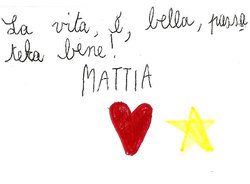 La vita, é, bella, passa
teka bene!
MATTIA